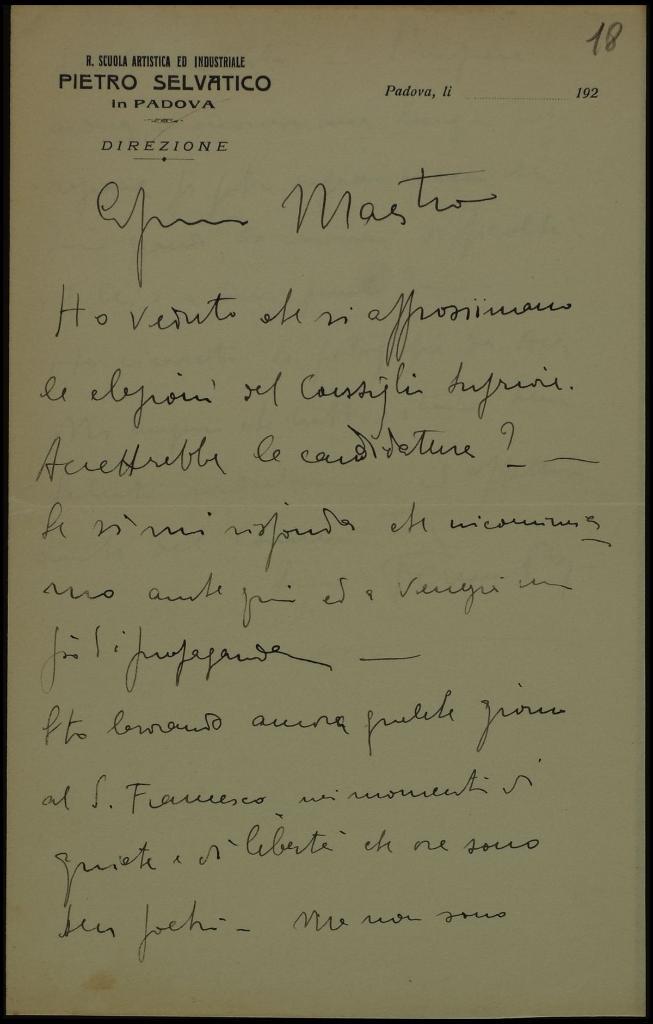 18
R. SCUOLA ARTISTICA ED INDUSTRIALE
PIETRO SELVATICO
In PADOVA
DIREZIONE
Padova, li 192
Maestro
Ho veduto che si approssimano
le elezioni del Consiglio Superiore.
Accettrebbe la candidatura? —
Se sì mi risponda che incomincia
mo anche qui ed a Venezia un
pò di propaganda —
Sto lavorando ancora qualche giorno
al S. Francesco nei momenti di
quiete e di libertà che ora sono
ben pochi – Ma non sono